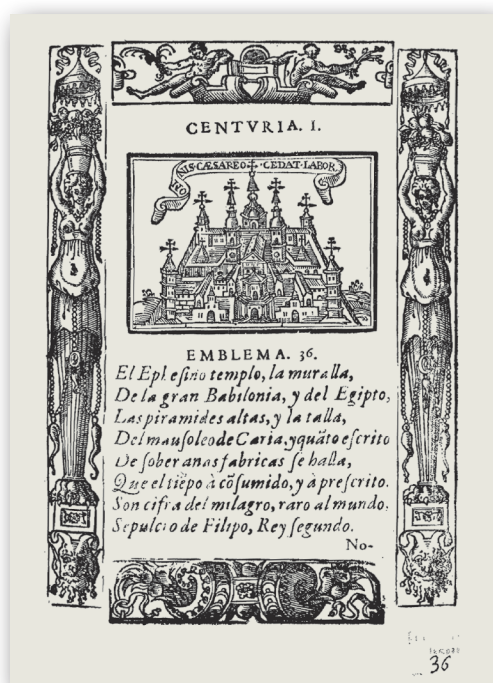 CENTVRIA. I.
OMNIS·CÆSAREO·CEDAT·LABOR
EMBLEMA. 36.
El Ephesino templo, la muralla,
De la gran Babilonia, y del Egipto,
Las piramides altas, y la talla,
Del mausoleo de Caria, y quãto escrito
De soberanas fabricas se halla,
Que el tiẽpo à cõsumido, y à prescrito.
Son cifra del milagro, raro al mundo,
Sepulcro de Filipo, Rey segundo.
No-
36